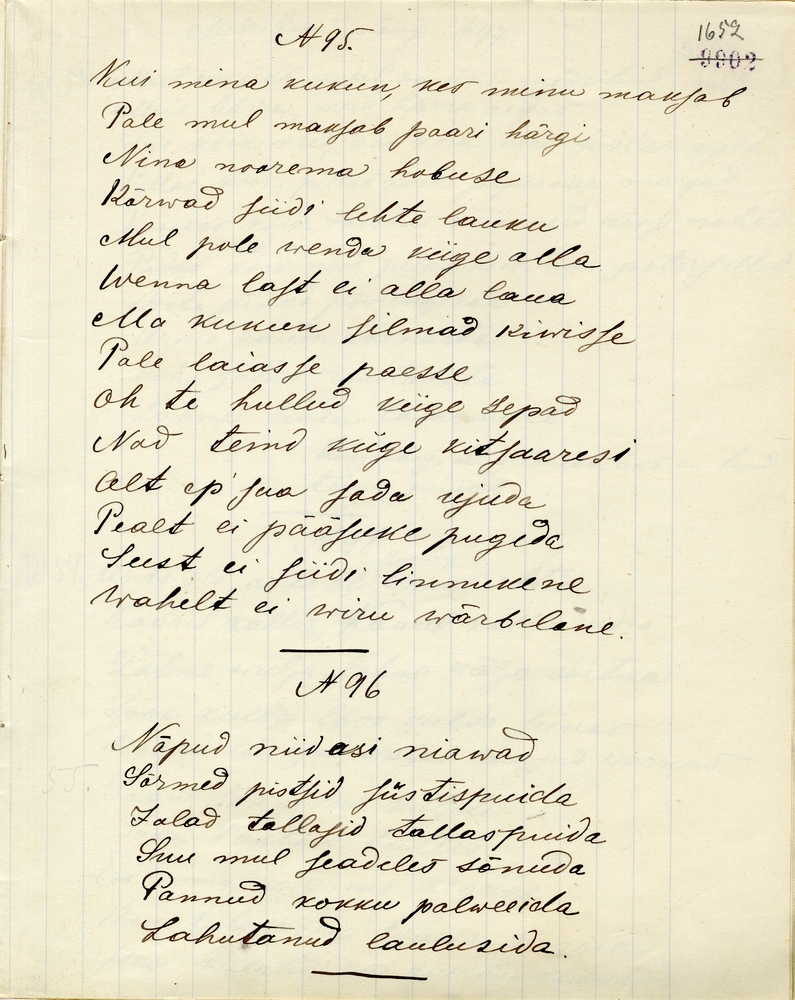 N 95.
1652
9902
Kui mina kukun, kes minu maksab
Pole mul maksab paari härgi
Nina noorema hobuse
Kõrwad siidi lehte lauku
Mul pole wenda kiige alla
Wenna last ei alla laua
Ma kukun silmad kiwisse
Pole laiasse paesse
Oh te hullud kiige sepad
Nad teind kiige kitsaaresi
Alt ep saa sada ujuda
Pealt ei pääsuke pugeda
Seest ei siidi linnukene
Wahelt ei wiru wärbelane.
N 96
Näpud niidasi niawad
Sõrmed pistsid süstispuida
Jalad tallasid tallaspuida
Suu mul seadeles sõnuda
Pannud kokku palweeida
Lahutanud laulusida.